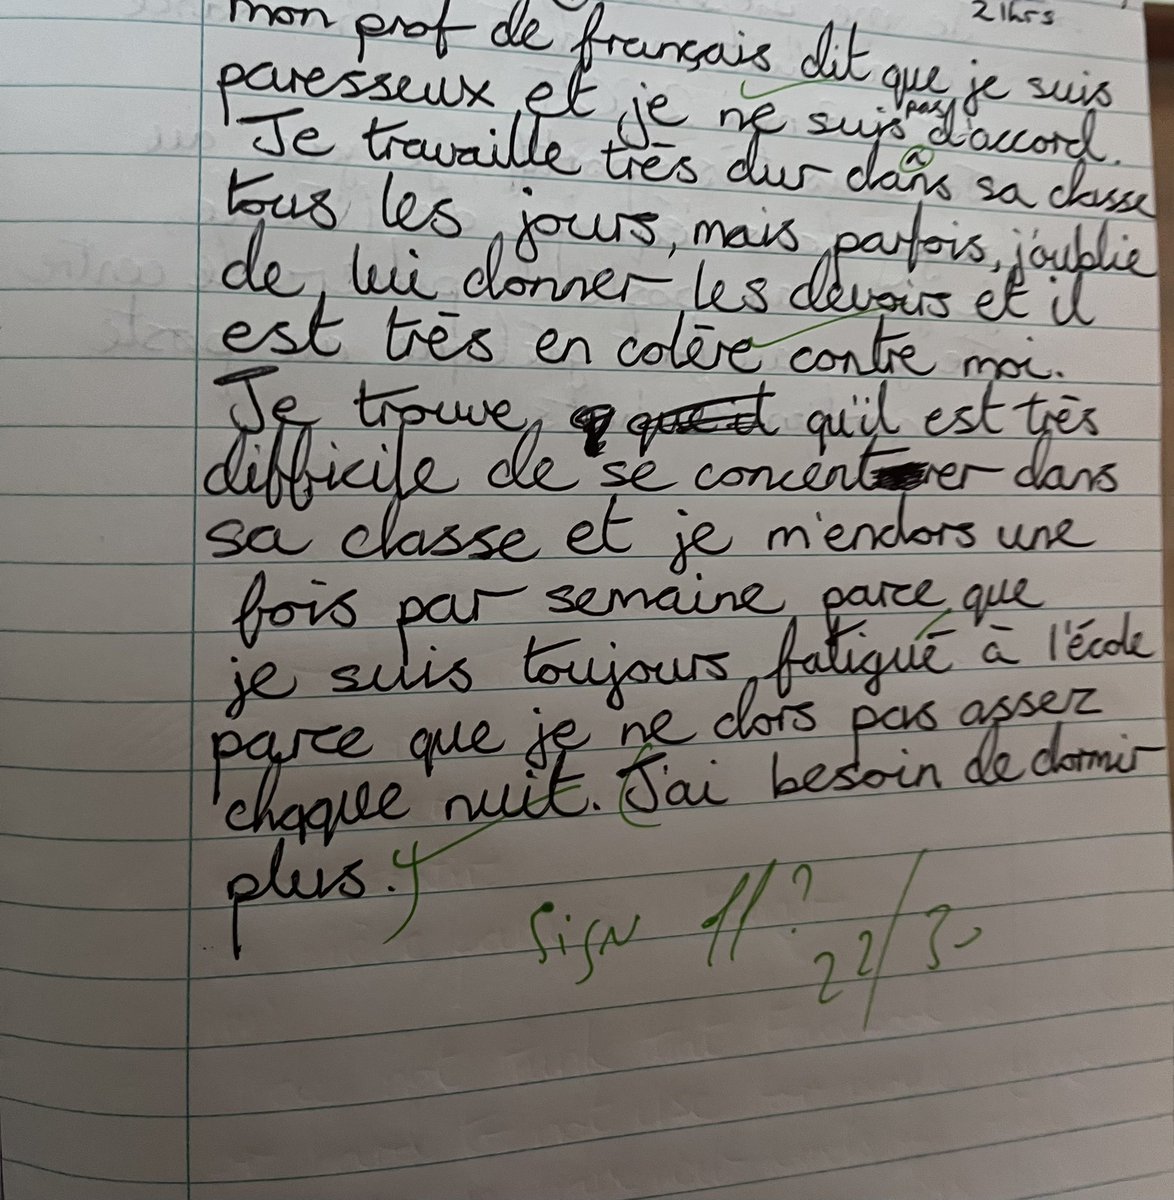 21hrs
mon prof de français dit que je suis
paresseux et je ne suis pas d'accord.
Je travaille très dur dans sa classe
tous les jours, mais parfois, j'oublie
de lui donner les devoirs et il
est très en colère contre moi.
Je trouve qu'il est très
difficile de se concentrer dans
sa classe et je m'endors une
fois par semaine parce que
je suis toujours fatigué à l'école
parce que je ne dors pas assez
chaque nuit. J'ai besoin de dormir
plus.
Sign ?
22/30